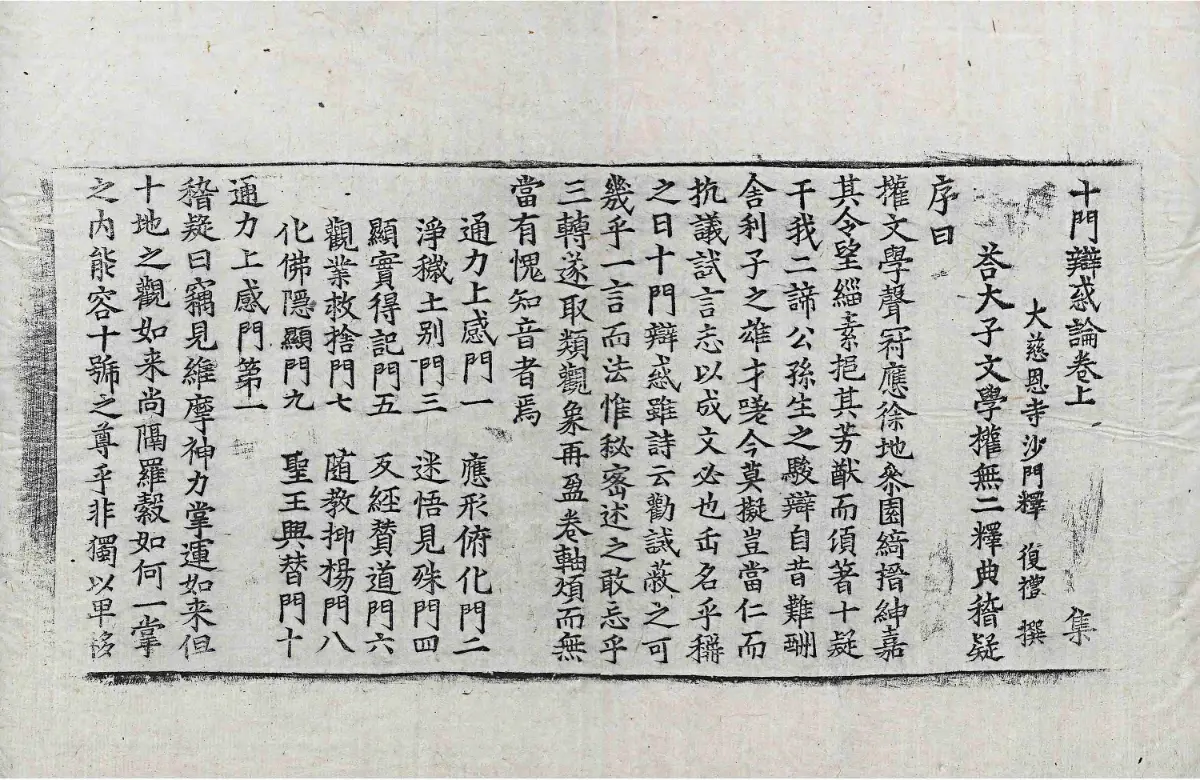 十門辯惑論卷上 集
大慈恩寺沙門釋 復禮 撰
荅大子文學攉無二釋典稽疑
序曰
攉文學聲冠應徐地叅園綺搢紳嘉
其令望緇素挹其芳猷而頃著十疑
干我二諦公孫生之駿辯自昔難酬
舍利子之雄才嗟今莫擬豈當仁而
抗議試言忘以成文必也正名乎稱
之曰十門辯惑雖詩云勸誡蔽之可
幾乎一言而法惟秘密述之敢忘乎
三轉遂取類觀象再盈卷軸煩而無
當有愧知音者焉
通力上感門一 應形俯化門二
淨穢土别門三 迷悟見殊門四
顯實得記門五 反經賛道門六
觀業救捨門七 随教抑揚門八
化佛隱顯門九 聖王興替門十
通力上感門第一
稽疑曰竊見維摩神力掌運如来但
十地之觀如来尚隔羅縠如何一掌
之内能容十號之尊乎非獨以卑移